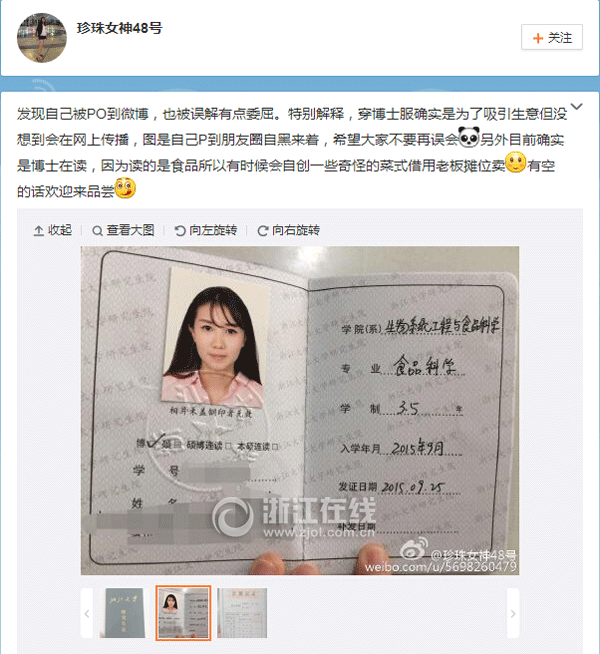 珍珠女神48号
+ 关注
发现自己被PO到微博，也被误解有点委屈。特别解释，穿博士服确实是为了吸引生意但没
想到会在网上传播，图是自己P到朋友圈自黑来着，希望大家不要再误会 另外目前确实
是博士在读，因为读的是食品所以有时候会自创一些奇怪的菜式借用老板摊位卖 有空
的话欢迎来品尝
收起 查看大图 向左旋转 向右旋转
相片未盖钢印者无效
博 硕 硕博连读□ 本硕连读□
学 号
姓 名
学院(系) 生物系统工程与食品科学
专 业 食品科学
学 制 3.5 年
入学年月 2015年9月
发证日期 2015.09.25
补发日期
浙江在线
www.zjol.com.cn
@珍珠女神48号
weibo.com/u/5698260479